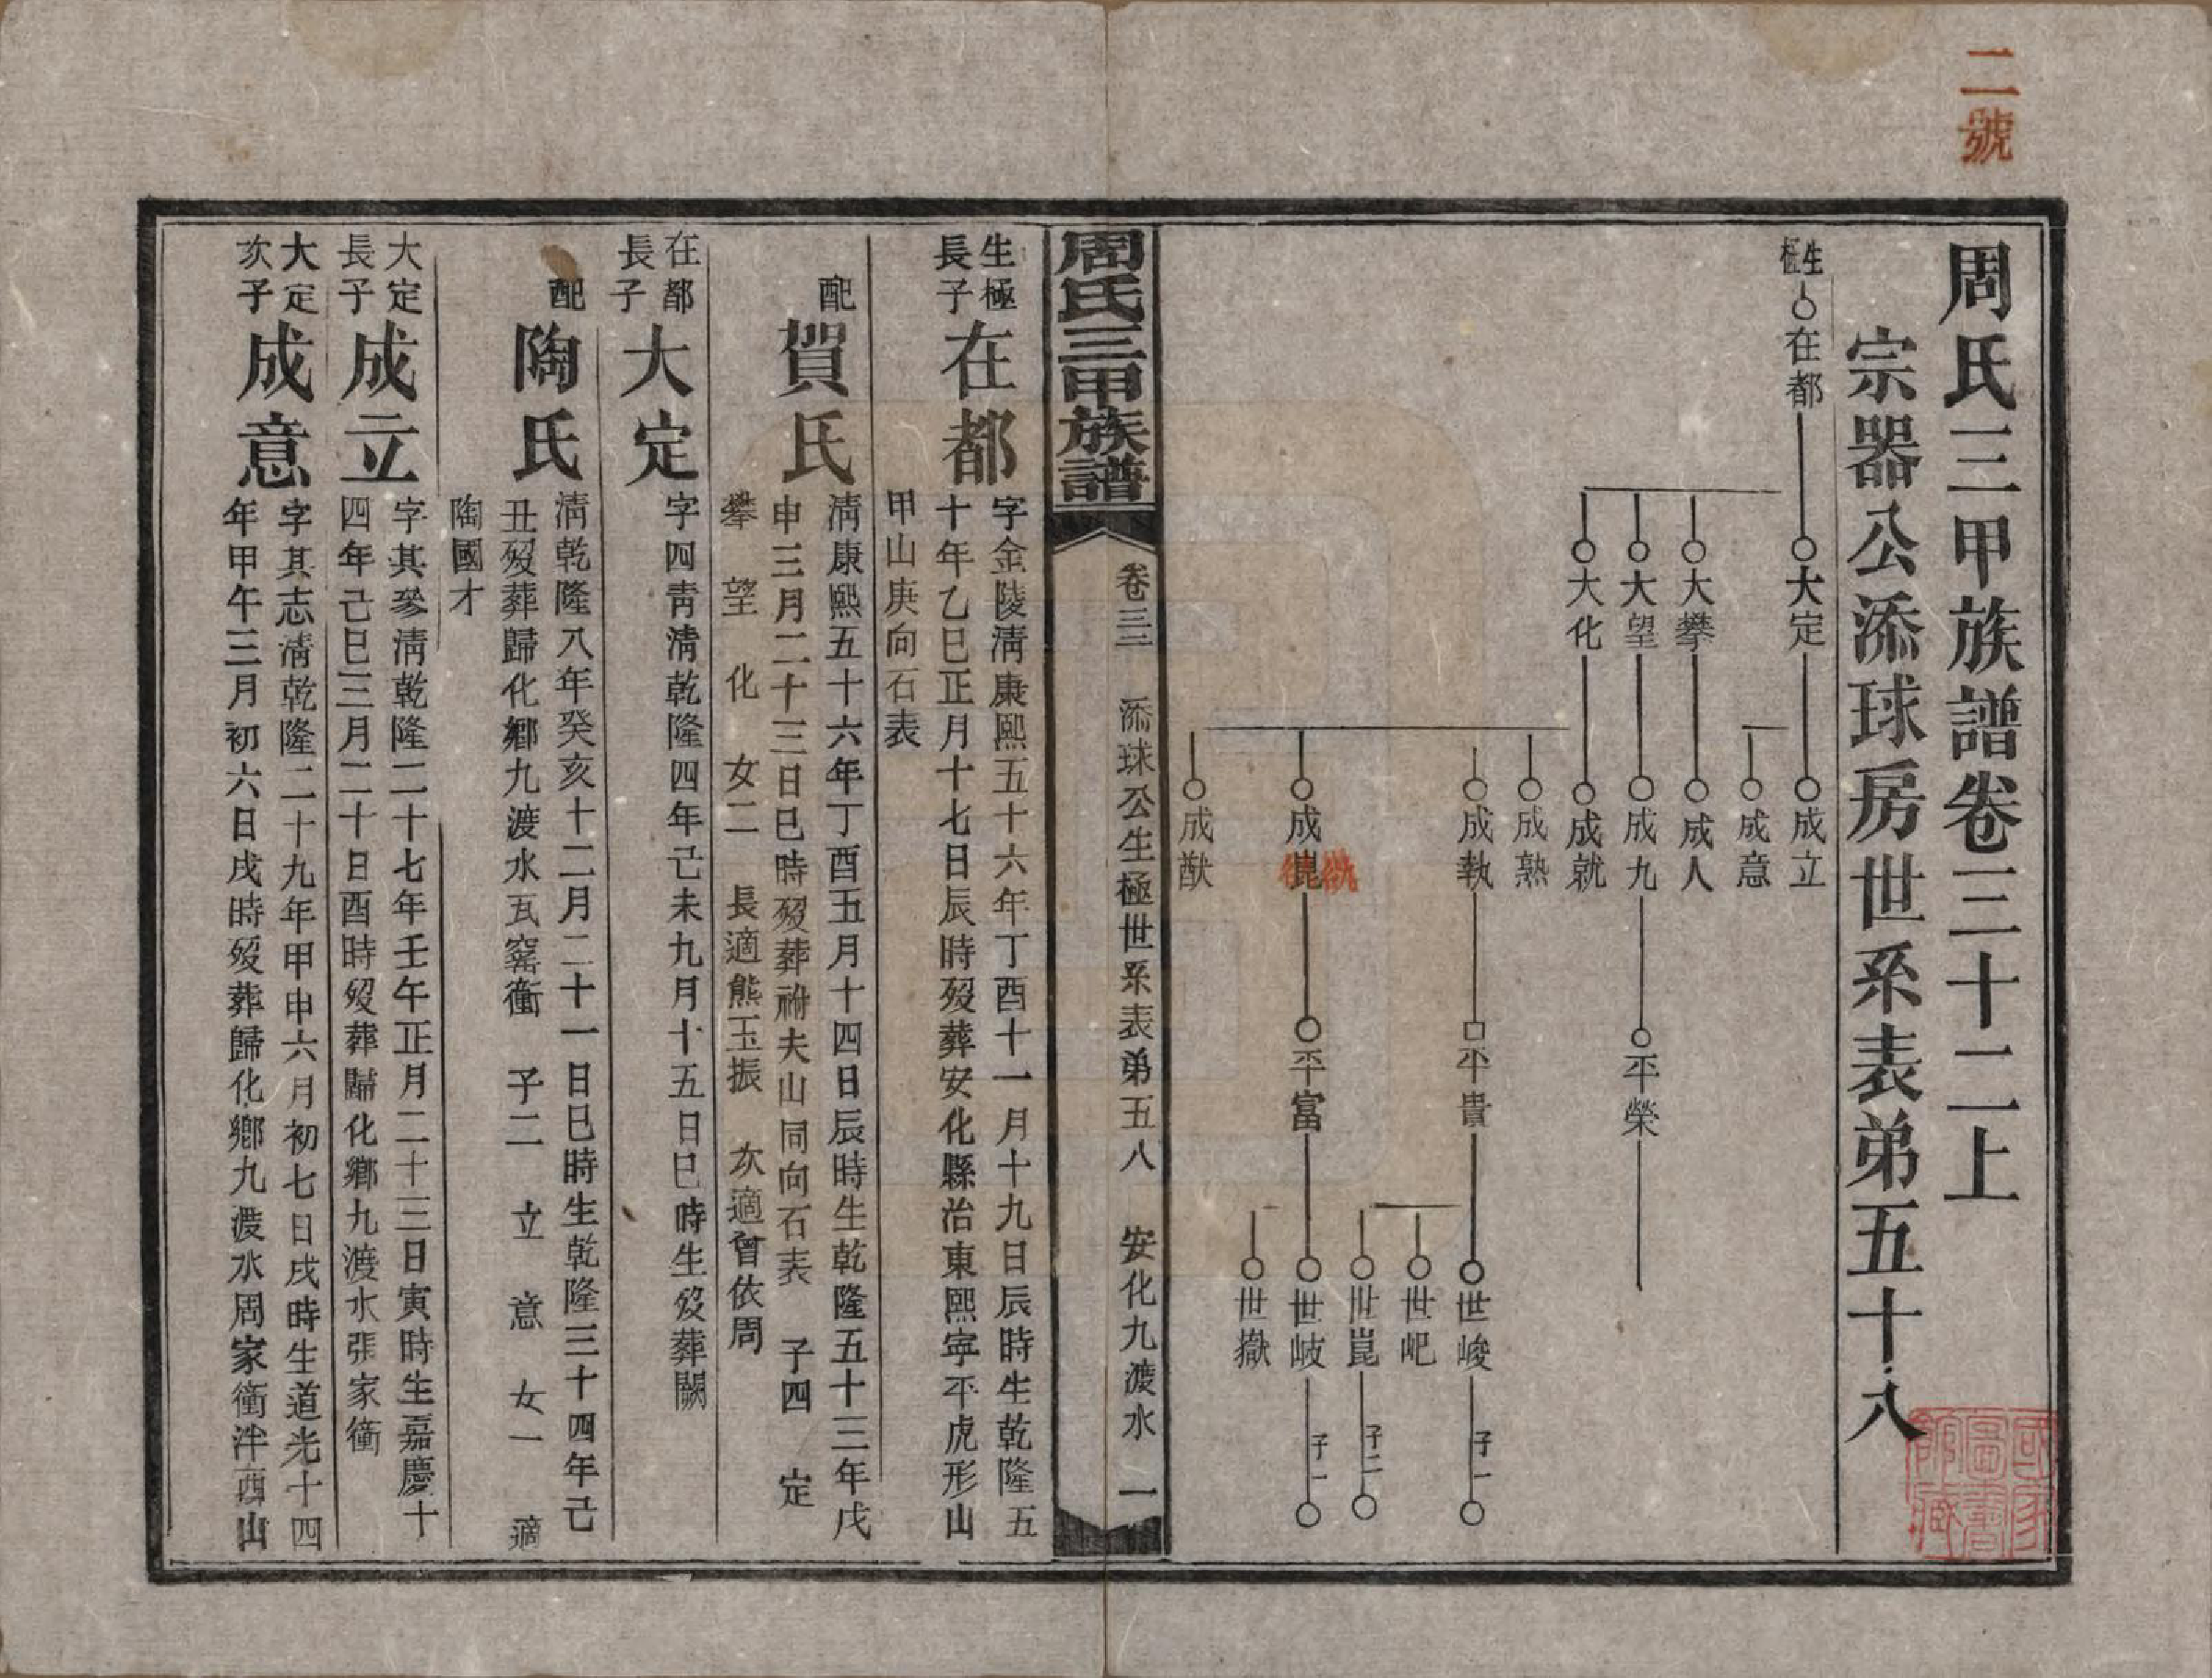 二號
周氏三甲族譜卷三十二上
宗器公添球房世系表弟五十八
生極
在都
大定
大攀
大望
大化
成立
成意
成人
成九
成就
成熟
成執
成崑
成猷
平榮
平貴
平富
世峻
世岊
世崑
世岐
世嶽
子一
子二
子一
國家圖書館藏
周氏三甲族譜
卷三二 添球公生極世系表弟五八 安化九渡水 一
生極長子
在都
字金陵清康熙五十六年丁酉十一月十九日辰時生乾隆五
十年乙巳正月十七日辰時歿葬安化縣治東熙寧平虎形山
甲山庚向石表
配
賀氏
清康熙五十六年丁酉五月十四日辰時生乾隆五十三年戊
申三月二十三日巳時歿葬祔夫山同向石表 子四 定
攀 望 化 女二 長適熊玉振 次適曾依周
在都長子
大定
字四靑清乾隆四年己未九月十五日巳時生歿葬闕
配
陶氏
淸乾隆八年癸亥十二月二十一日巳時生乾隆三十四年己
丑歿葬歸化鄉九渡水瓦窰衝 子二 立 意 女一 適
陶國才
大定長子
成立
字其參淸乾隆二十七年壬午正月二十三日寅時生嘉慶十
四年己巳三月二十日酉時歿葬歸化鄉九渡水張家衝
大定次子
成意
字其志淸乾隆二十九年甲申六月初七日戌時生道光十四
年甲午三月初六日戌時歿葬歸化鄉九渡水周家衝泮西山